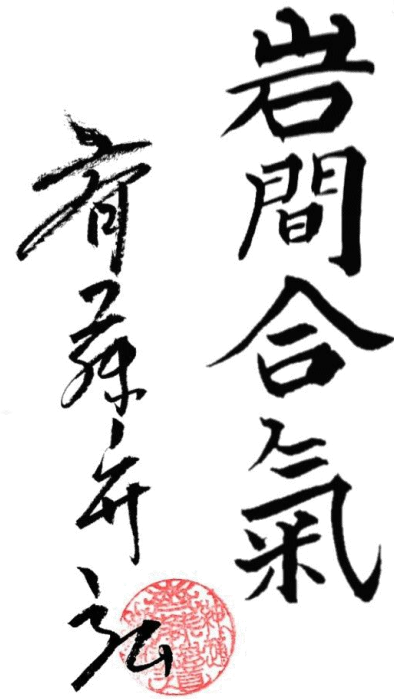 岩間合氣
斉藤守弘